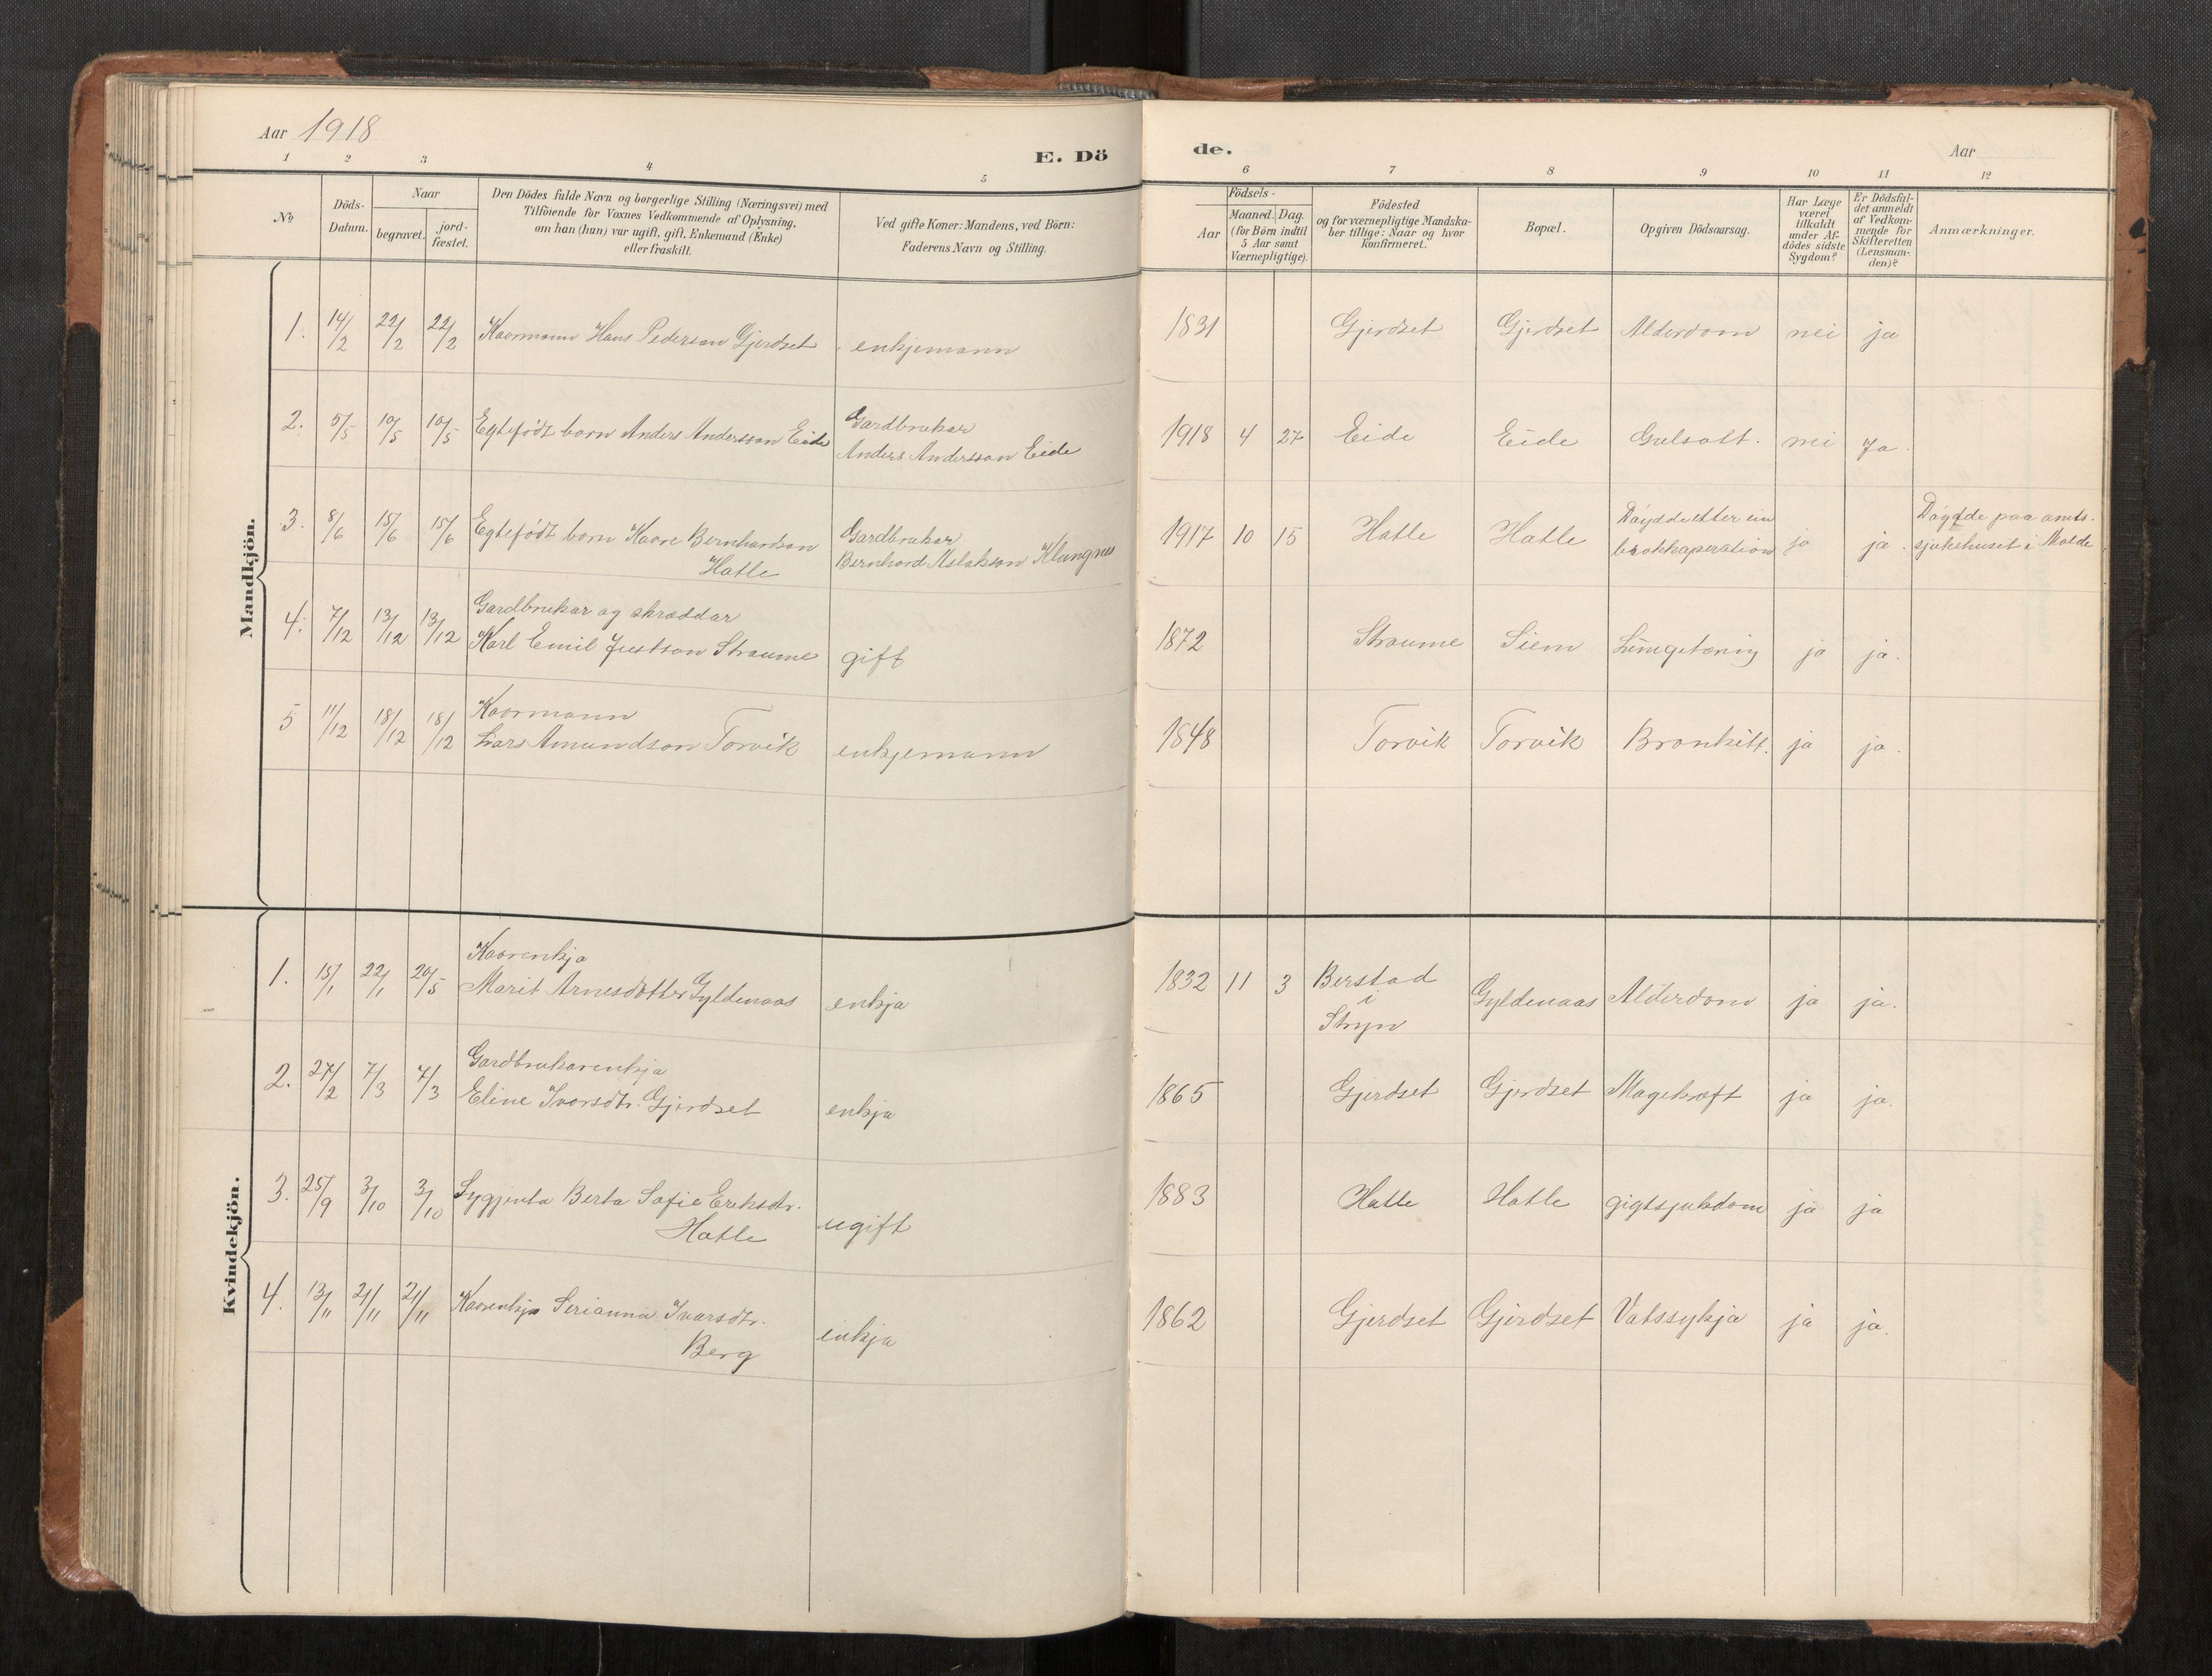 Aar 1918
E. Dö
de.
Aar
1 2 3 4 5 6 7 8 9 10 11 12
№
Döds-
Datum.
Naar
begravet.
jord-
fæstet.
Den Dödes fulde Navn og borgerlige Stilling (Næringsvei) med
Tilföiende for Voxnes Vedkommende af Oplysning,
om han (hun) var ugift, gift, Enkemand (Enke)
eller fraskilt.
Ved gifte Koner: Mandens, ved Börn:
Faderens Navn og Stilling.
Födsels-
Aar
Maaned. Dag.
(for Börn indtil
5 Aar samt
Værnepligtige).
Födested
og for værnepligtige Mandska-
ber tillige: Naar og hvor
Konfirmeret.
Bopæl.
Opgiven Dödsaarsag.
Har Læge
været
tilkaldt
under Af-
dödes sidste
Sygdom?
Er Dödsfal-
det anmeldt
af Vedkom-
mende for
Skifteretten
(Lensman-
den)?
Anmærkninger.
Mandkjön.
1. 14/2 22/2 22/2 Kaarmann Hans Pederson Gjerdset enkjemann 1831 Gjerdset Gjerdset Alderdom nei ja
2. 5/5 10/5 10/5 Egtefödt barn Anders Andersson Eide Gardbrukar
Anders Andersson Eide 1918 4 27 Eide Eide Gulsott. nei Ja.
3. 8/6 15/6 15/6 Egtefödt barn Kaare Bernhardson
Hatle Gardbrukar
Bernhard Aslakson Klungnes 1917 10 15 Hatle Hatle Döydde etter ein
brokkaperation ja ja. Döydde paa amts-
sjukehuset i Molde
4. 7/12 13/12 13/12 Gardbrukar og skræddar
Karl Emil Justson Straume gift 1872 Straume Siem Lungetæring ja ja.
5 11/12 18/12 18/12 Kaarmann
Lars Amundson Torvik enkjemann 1848 Torvik Torvik Bronkitt. ja ja.
Kvindekjön.
1. 15/1 22/1 20/5 Kaarenkja
Marit Arnesdotter Gyldenaas enkja 1832 11 3 Berstad
i
Stryn Gyldenaas Alderdom ja ja.
2. 27/2 7/3 7/3 Gardbrukarenkja
Eline Ivarsdtr. Gjerdset enkja 1865 Gjerdset Gjerdset Magekræft ja ja.
3. 25/9 3/10 3/10 Sygjenta Berta Sofie Eriksdtr.
Hatle ugift 1883 Hatle Hatle gigtsjukdom ja ja
4. 13/11 21/11 21/11 Kaarenkja Serianna Ivarsdtr.
Berg enkja 1862 Gjerdset Gjerdset Vatssykja ja ja.